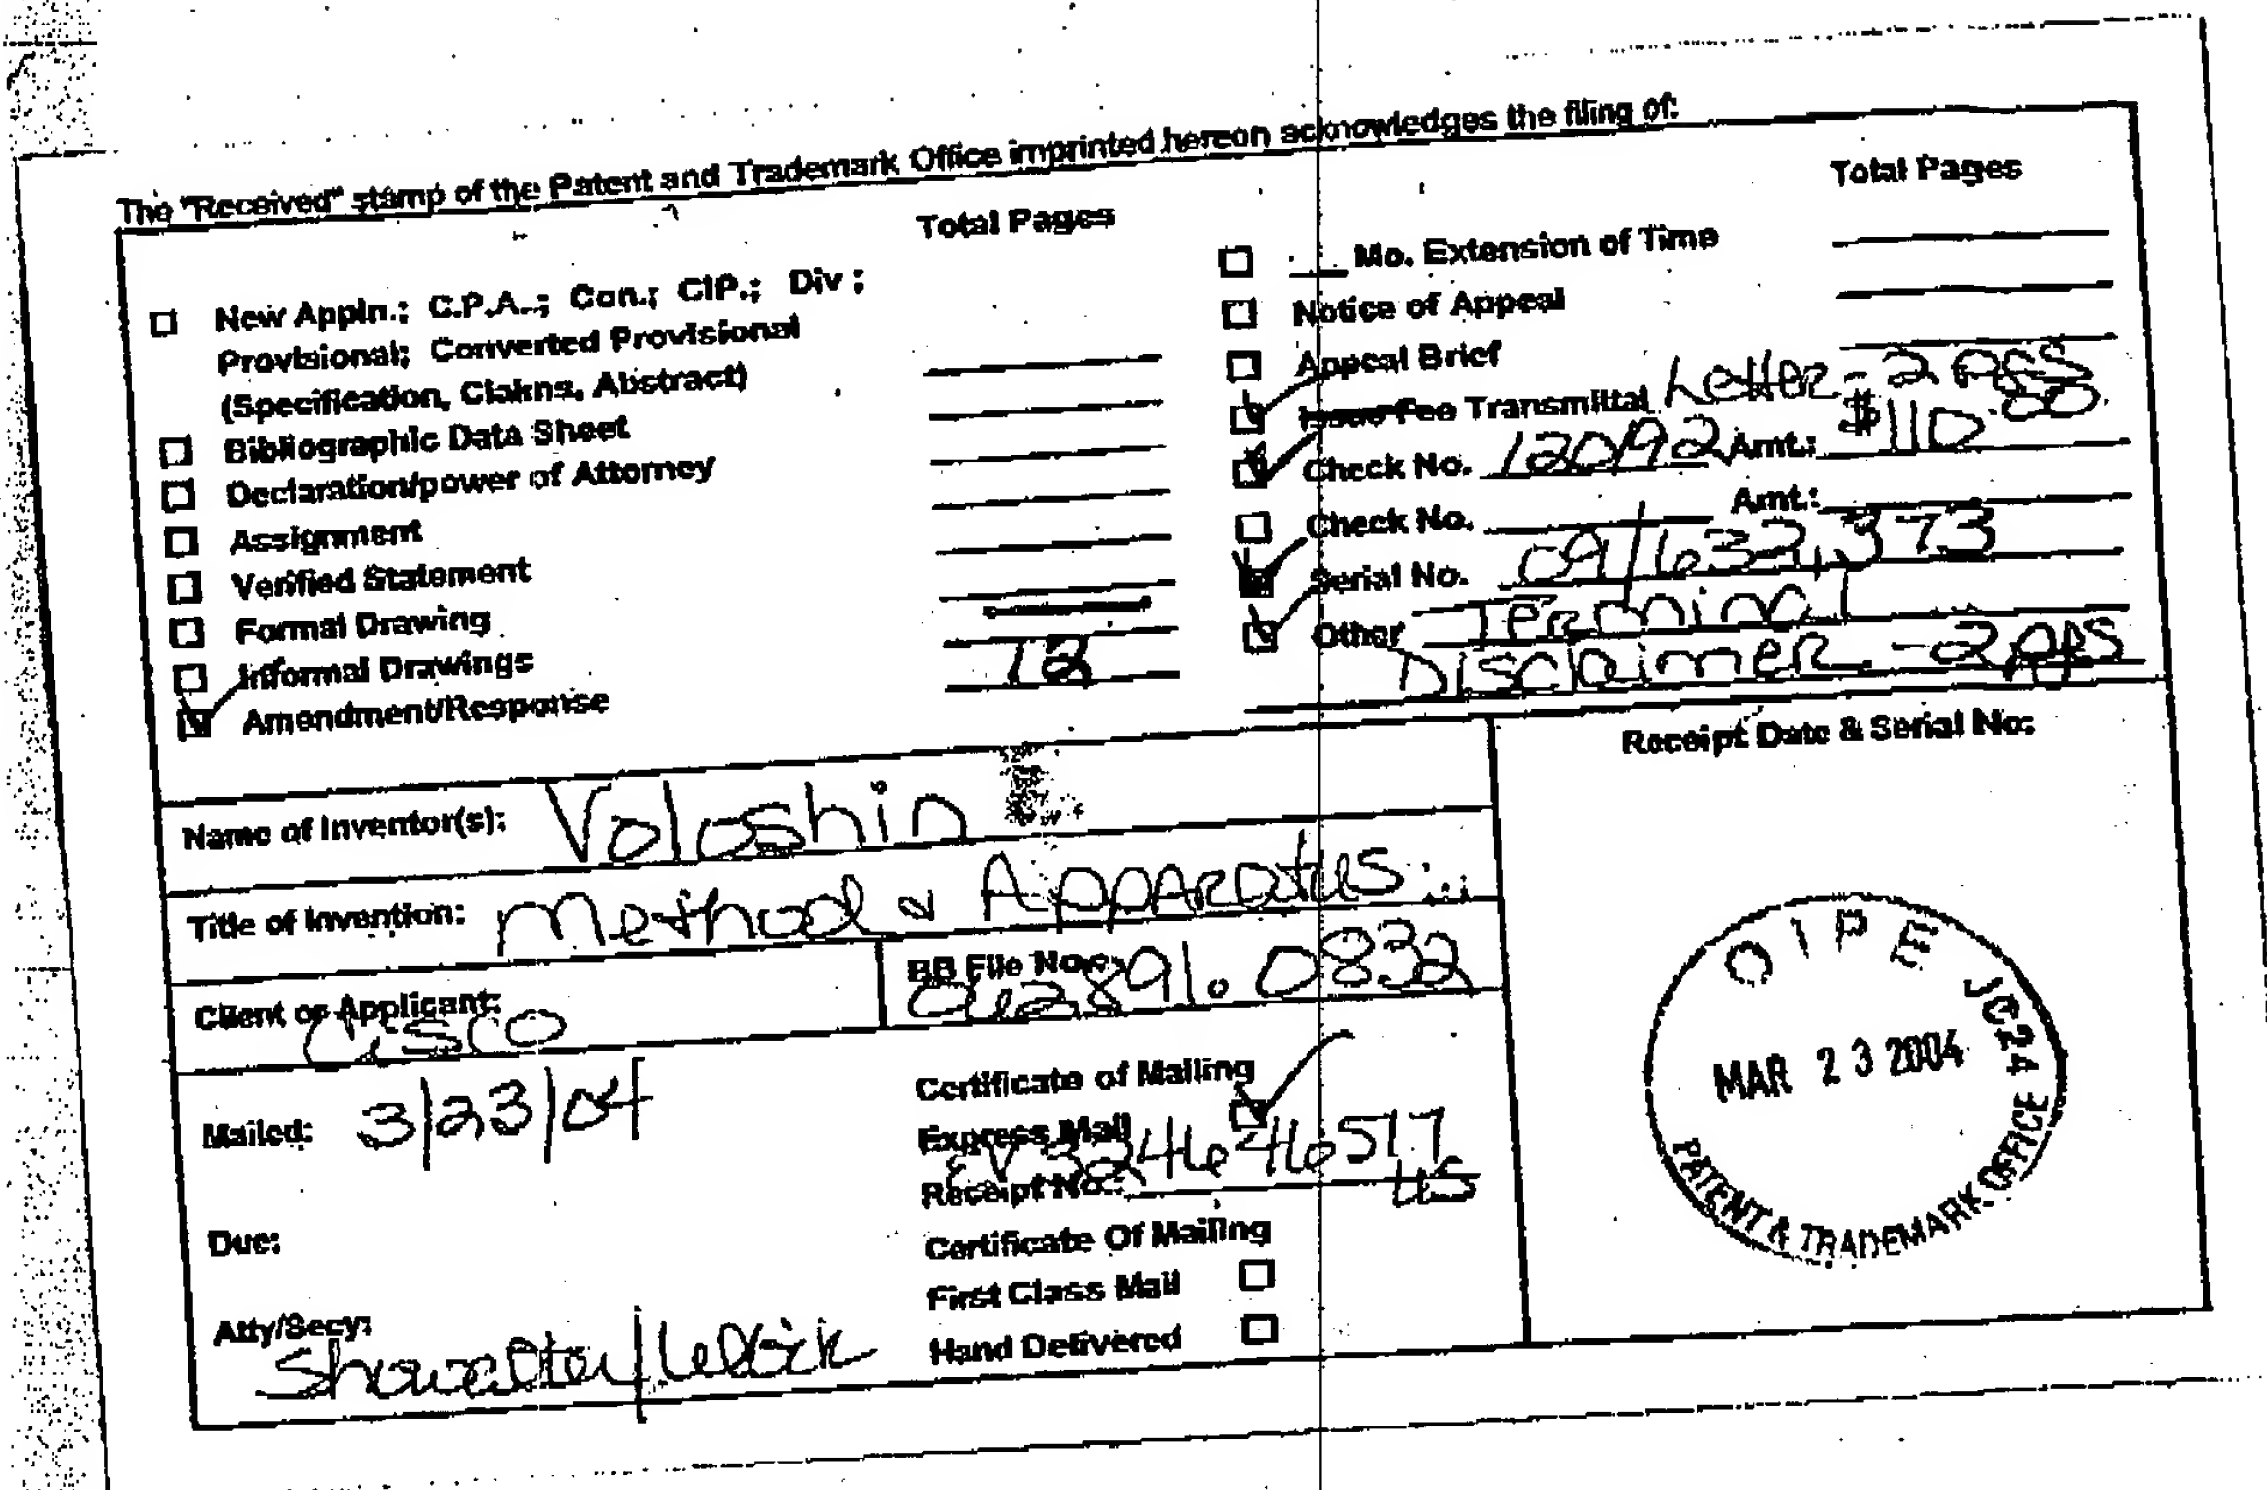 The "Received" stamp of the Patent and Trademark Office imprinted hereon acknowledges the filing of:
Total Pages
New Appln.; C.P.A.; Con.; CIP.; Div ;
Provisional; Converted Provisional
(Specification, Claims, Abstract)
Bibliographic Data Sheet
Declaration/power of Attorney
Assignment
Verified Statement
Formal Drawing
Informal Drawings
Amendment/Response 12
Total Pages
___ Mo. Extension of Time
Notice of Appeal
Appeal Brief
Issue Fee Transmittal Letter - 2 pgs
Check No. 120192 Amt.: $110.00
Check No. Amt.:
Serial No. 09/632,373
Other Terminal
Disclaimer - 2 pgs
Name of Inventor(s): Voloshin
Title of Invention: Method & Apparatus...
Client or Applicant: Cisco
BB File No.: 062891.0832
Mailed: 3/23/04
Due:
Atty/Secy:
Showalter/
Certificate of Mailing
Express Mail
Receipt No.: EV 324646517
US
Certificate Of Mailing
First Class Mail
Hand Delivered
Receipt Date & Serial No:
OIPE JC24
MAR 23 2004
PATENT & TRADEMARK OFFICE